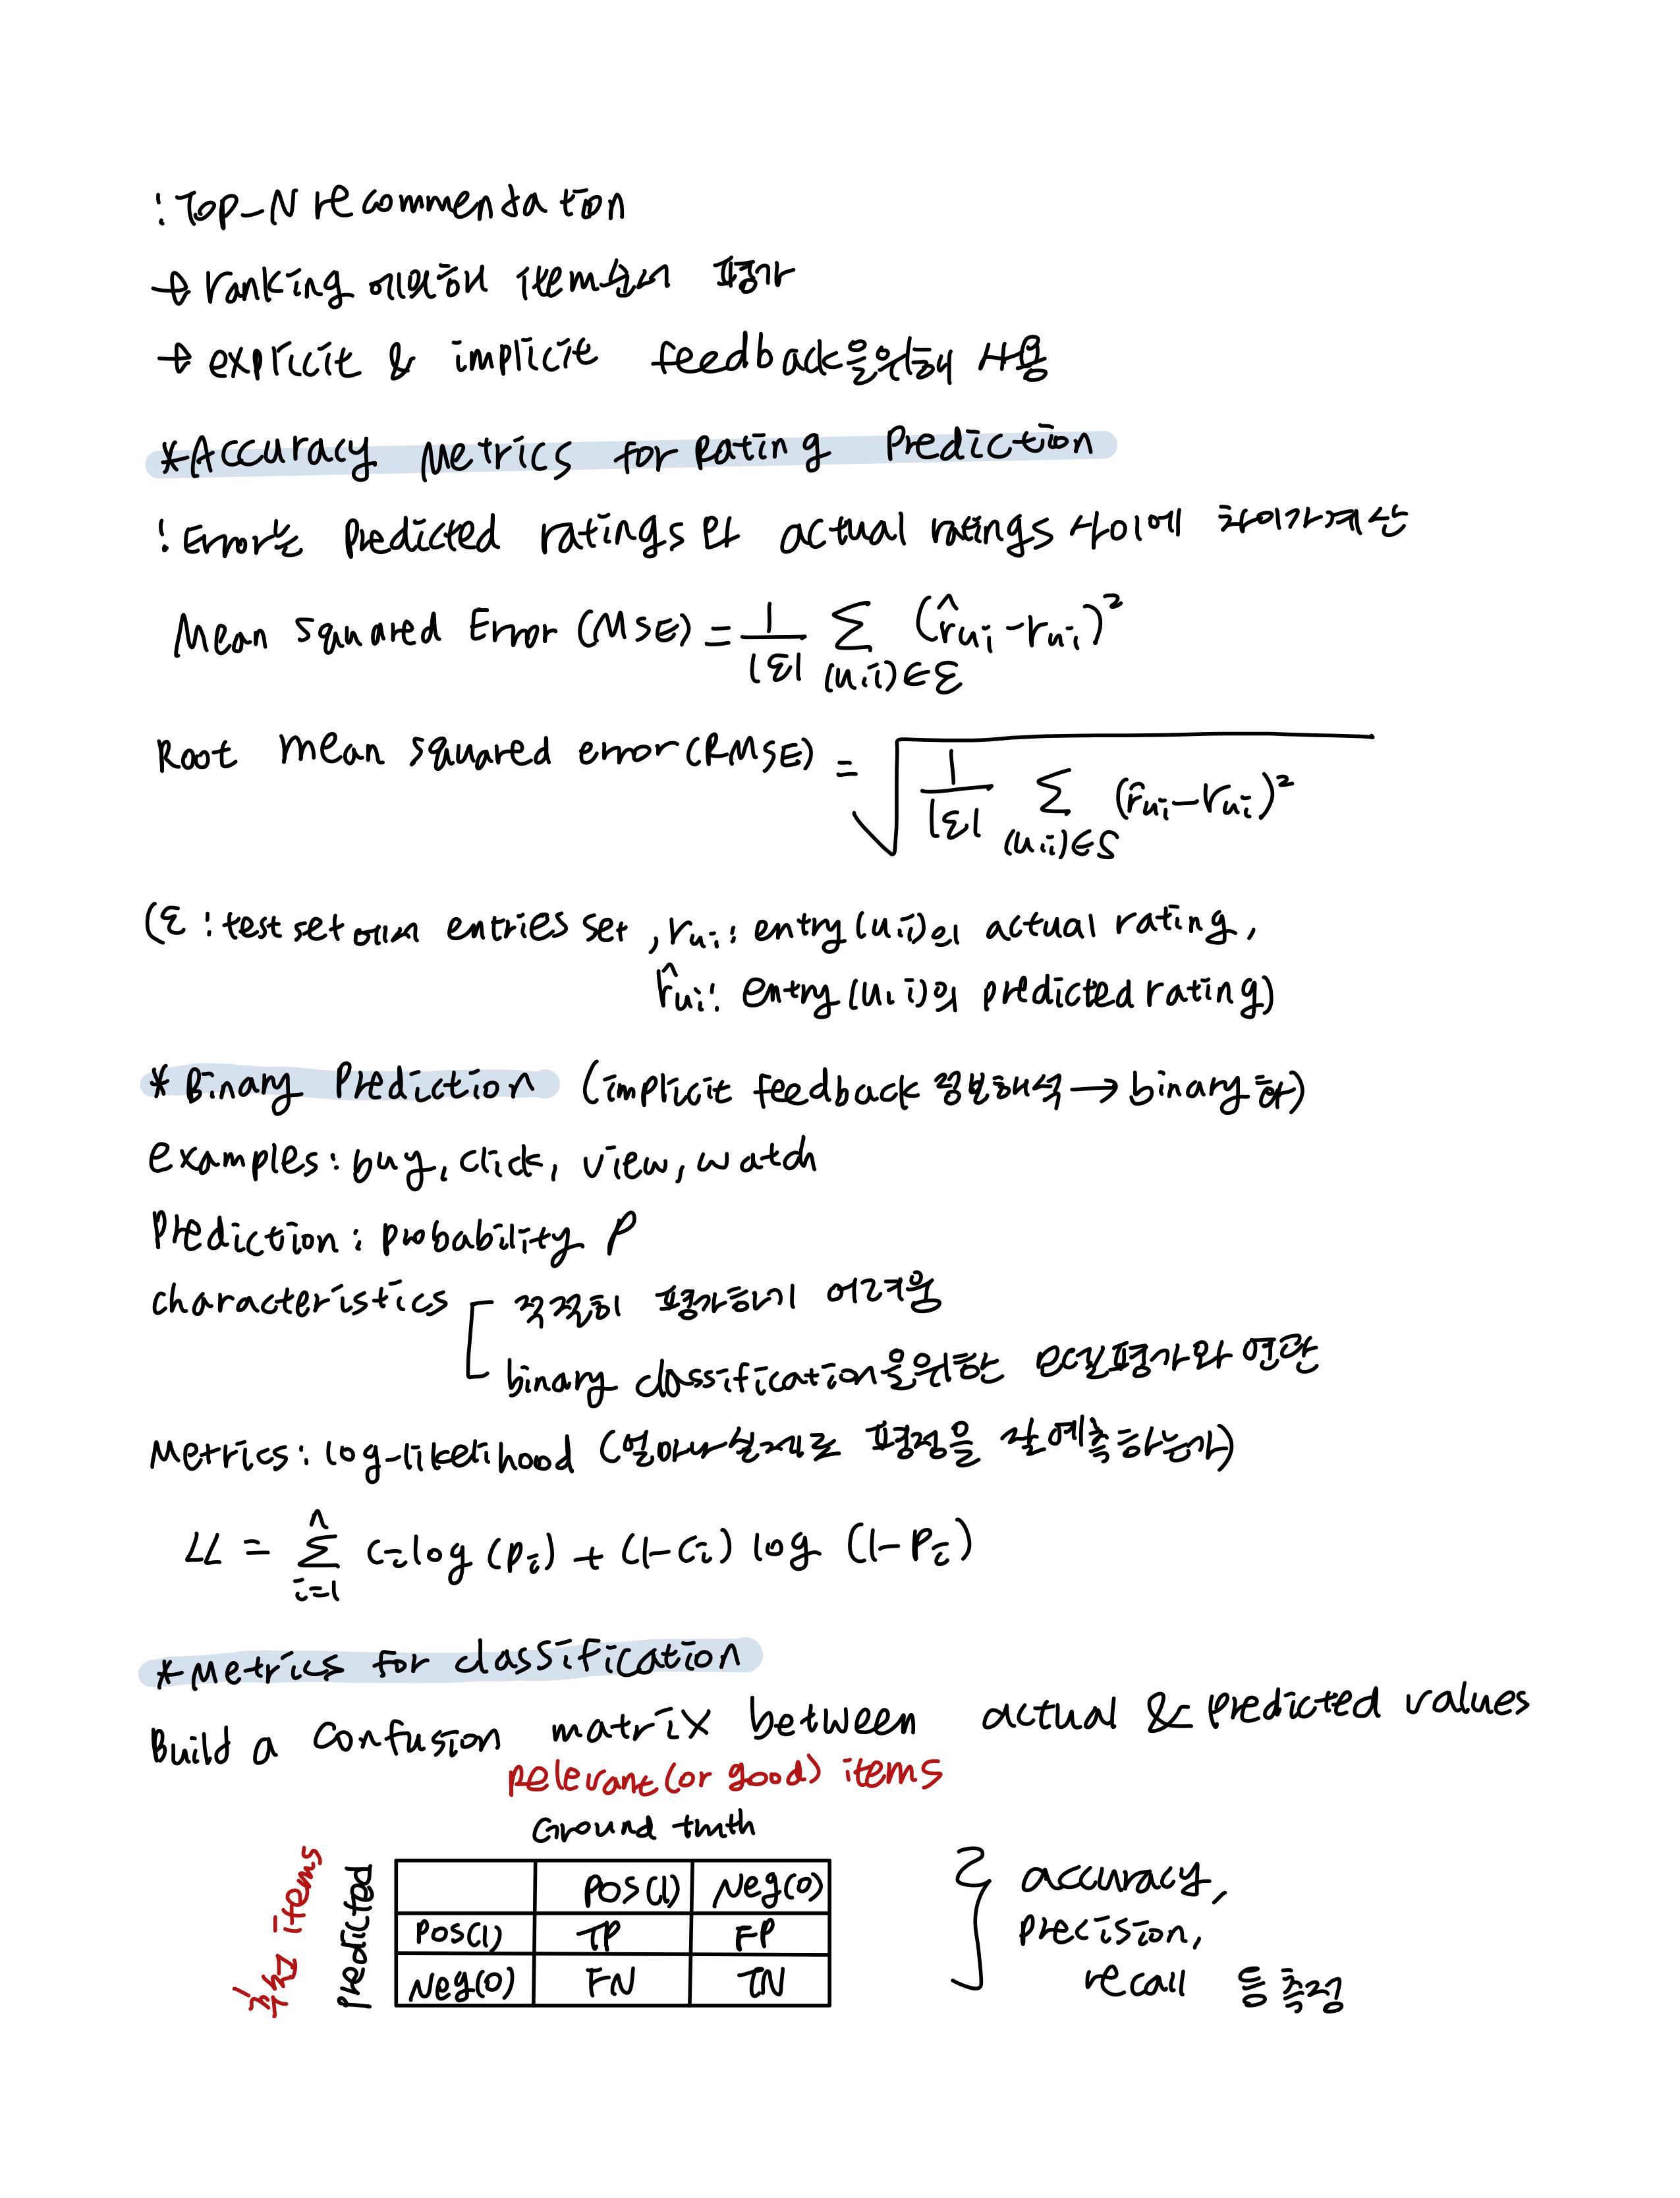 : Top-N recommendation
→ ranking 에의해 item순서 평가
→ explicit & implicit feedback을위해 사용
*Accuracy Metrics for Rating Prediction
: Error는 Predicted ratings 와 actual ratings 사이에 차이가계산
Mean squared Error (MSE) = 1/|Σ| Σ (r̂ui - rui)²
(u,i)∈Σ
Root mean squared error (RMSE) = √ 1/|Σ| Σ (r̂ui - rui)²
(u,i)∈S
(Σ : test set에서 entries set , rui : entry (u,i)의 actual rating,
r̂ui : entry (u,i)의 predicted rating)
* Binary Prediction (implicit feedback 정보해석 → binary 화)
examples : buy, click, view, watch
Prediction : probability P
characteristics
적절히 평가하기 어려움
binary classification을위한 모델평가와 연관
Metrics : log-likelihood (얼마나실제로 평점을 잘 예측하는가)
LL = Σ ci log (pi) + (1-ci) log (1-Pi)
n
i=1
*Metrics for classification
Build a confusion matrix between actual & predicted values
Relevant (or good) items
Ground truth
추천 items
Predicted
Pos(1) Neg(0)
Pos(1) TP FP
Neg(0) FN TN
accuracy,
precision,
recall 등 측정